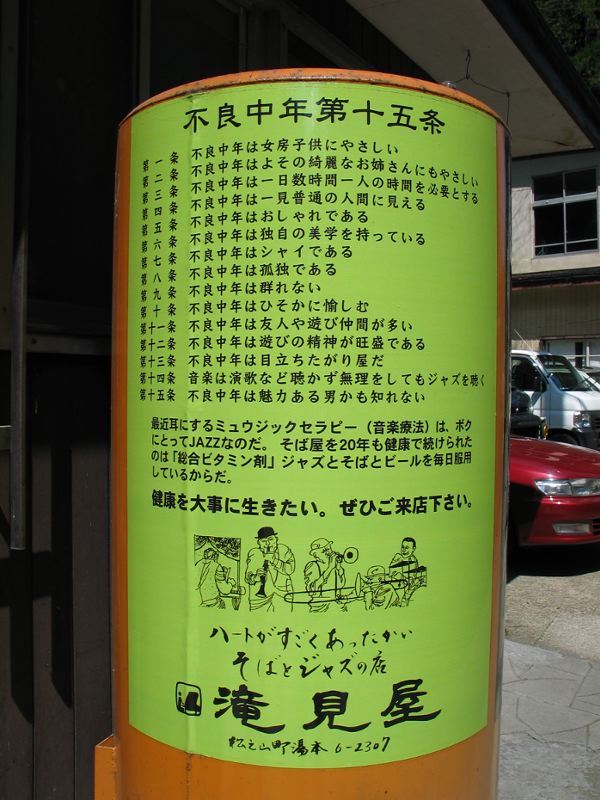 不良中年第十五条
第一条 不良中年は女房子供にやさしい
第二条 不良中年はよその綺麗なお姉さんにもやさしい
第三条 不良中年は一日数時間一人の時間を必要とする
第四条 不良中年は一見普通の人間に見える
第五条 不良中年はおしゃれである
第六条 不良中年は独自の美学を持っている
第七条 不良中年はシャイである
第八条 不良中年は孤独である
第九条 不良中年は群れない
第十条 不良中年はひそかに愉しむ
第十一条 不良中年は友人や遊び仲間が多い
第十二条 不良中年は遊びの精神が旺盛である
第十三条 不良中年は目立ちたがり屋だ
第十四条 音楽は演歌など聴かず無理をしてもジャズを聴く
第十五条 不良中年は魅力ある男かも知れない
最近耳にするミュウジックセラピー（音楽療法）は、ボク
にとってJAZZなのだ。そば屋を20年も健康で続けられた
のは「総合ビタミン剤」ジャズとそばとビールを毎日服用
しているからだ。
健康を大事に生きたい。ぜひご来店下さい。
ハートがすごくあったかい
そばとジャズの店
滝見屋
松之山町湯本6-2307